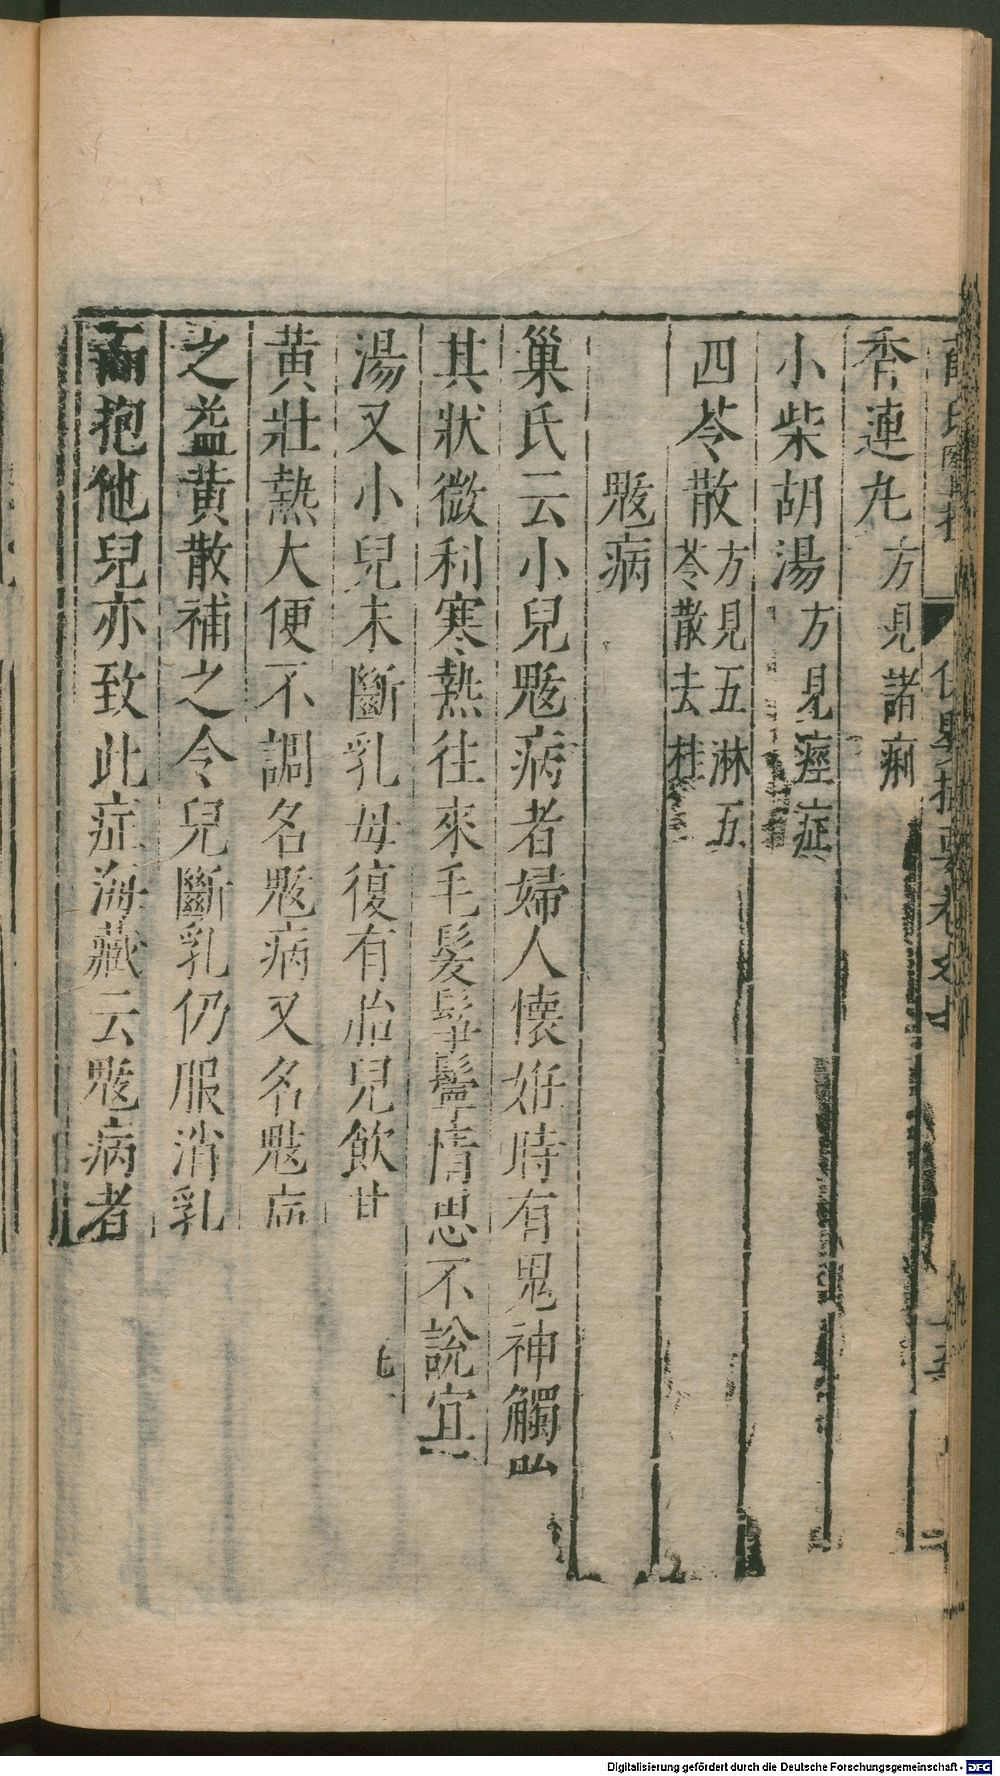 香連丸方見諸痢
小柴胡湯方見痙症
四苓散方見五淋五
苓散去桂
鬾病
巢氏云小兒鬾病者婦人懷姙時有鬼神觸
其狀微利寒熱往來毛髮鬇鬡情思不說宜
湯又小兒未斷乳母復有胎兒飲
黃壯熱大便不調名鬾病又名魃病
之益黃散補之令兒斷乳仍服消乳
抱他兒亦致此症海藏云鬾病者
Digitalisierung gefördert durch die Deutsche Forschungsgemeinschaft - DFG